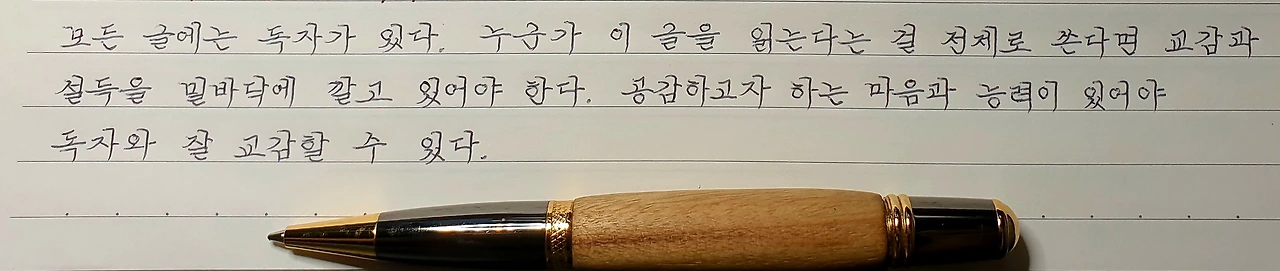 모든 글에는 독자가 있다. 누군가 이 글을 읽는다는 걸 전제로 쓴다면 교감과
설득을 밑바닥에 깔고 있어야 한다. 공감하고자 하는 마음과 능력이 있어야
독자와 잘 교감할 수 있다.